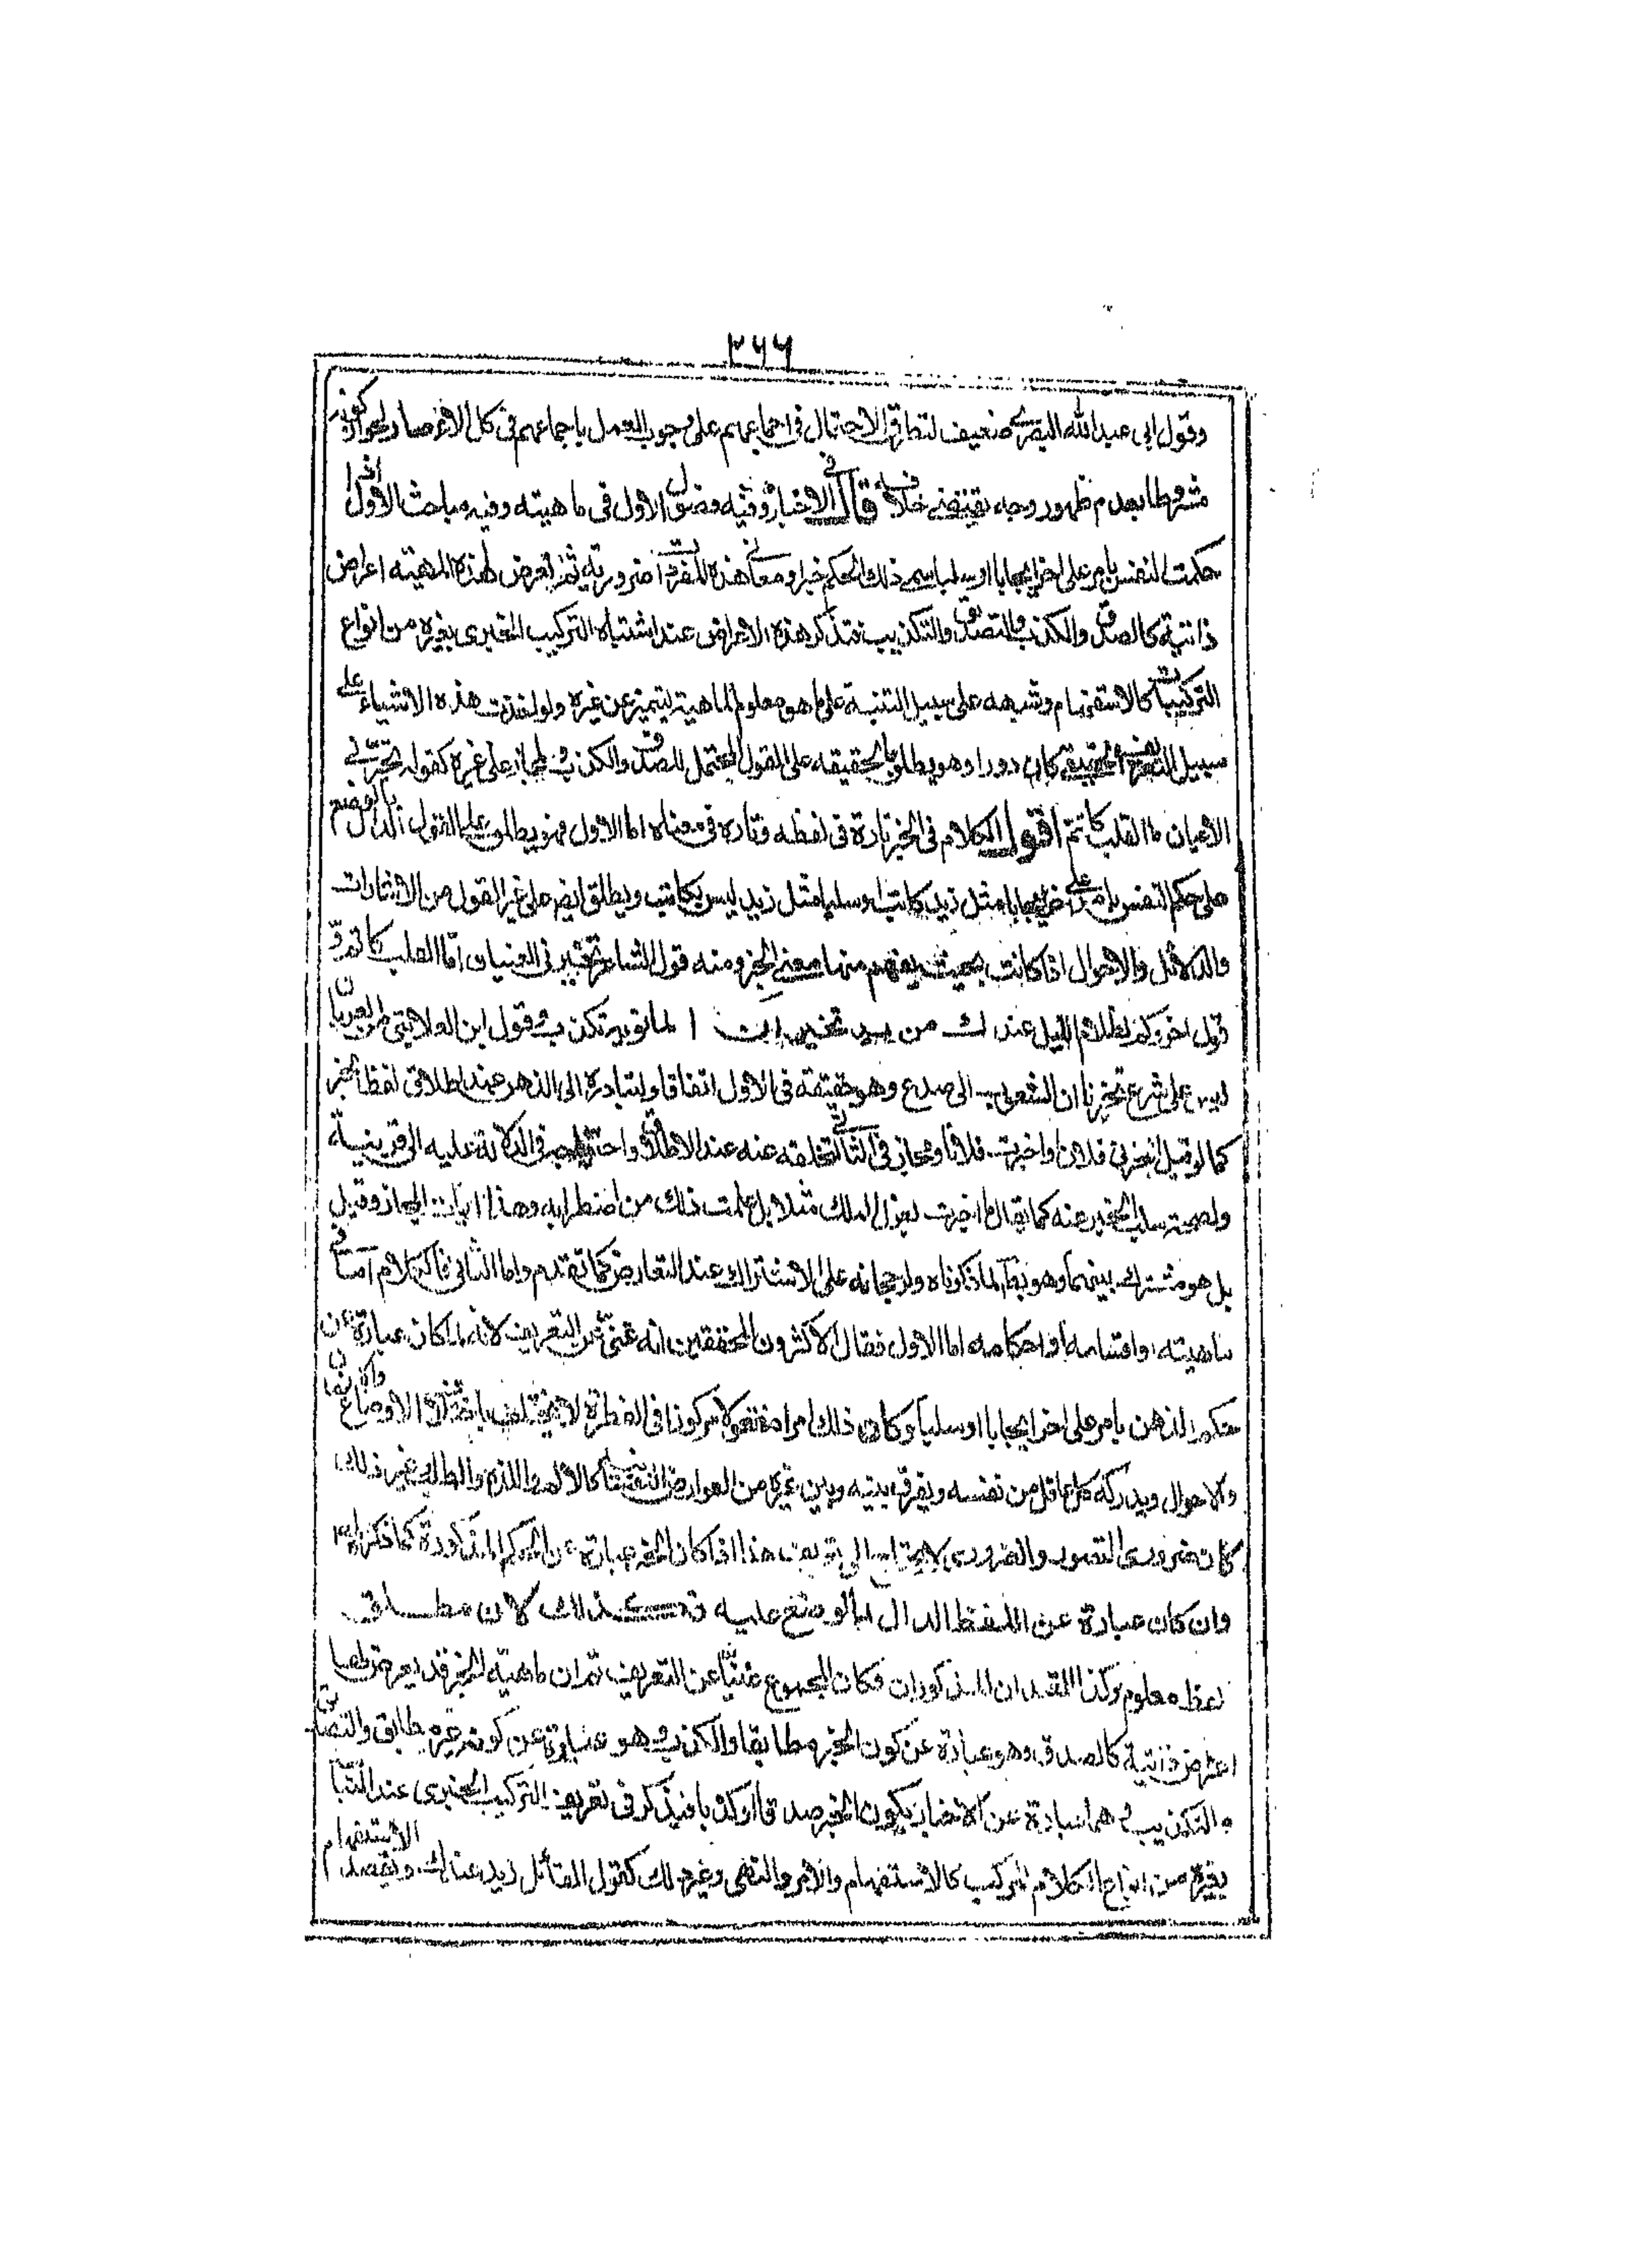 ٢٦٦
وقول ابي عبد الله البصري ضعيف لتطرق الاحتمال في اجماعهم على وجوب العمل باجماعهم في كل الاعصار لجواز كونه
مشروطا بعدم ظهور وجه يقتضي خلافه قال في الاخبار وفيه فصول الاول في ماهيته وفيه مباحث الاول اذا
حكمت النفس بامر على اخر ايجابا او سلبا سمي ذلك الحكم خبرا ومعاني هذه المفردات ضرورية ثم تعرض لهذه المهية اعراض
ذاتية كالصدق والكذب والتصديق والتكذيب فتذكر هذه الاعراض عند اشتباه التركيب الخبري بغيره من انواع
التركيبات كالاستفهام وشبهه على سبيل التنبيه على ما هو معلوم الماهية ليتميز عن غيره ولو اخذت هذه الاشياء على
سبيل التعريف الحقيقي كان دورا وهو يطلق بالحقيقه على القول المحتمل للصدق والكذب وبالمجاز على غيره كقوله تخبرني
الاعيان ما القلب كاتم اقول الكلام في الخبر تارة في لفظه وتاره في معناه اما الاول فهو يطلق على القول الدال بالوضع
على حكم النفس بامر على اخر ايجابا مثل زيد كاتب او سلبا مثل زيد ليس بكاتب ويطلق ايضا على غير القول من الاشارات
والدلائل والاحوال اذا كانت بحيث يفهم منها معنى الخبر ومنه قول الشاعر تخبرني العينان ما القلب كاتم و
قول اخر وكم لظلام الليل عندك من يد تخبر ان المانويه تكذب وقول ابن العلا
على شرع تخبرنا ان الشعوب الى صدع وهو حقيقته في الاول اتفاقا ولتبادره الى الذهن عند اطلاق لفظ الخبر
كما لو قيل اخبرني فلان واخبرت فلانا ومجاز في الثاني لتخلفه عنه عند الاطلاق واحتياجه في الدلالة عليه الى قرينة
ولصحة سلب الخبر عنه كما يقال ما اخبرت بعزل الملك مثلا بل علمت ذلك من اضطرابه وهذا ايات المجاز وقيل
بل هو مشترك بينهما وهو بط لما ذكرناه ولرجحانه على الاشتراك عند التعارض كما تقدم واما الثاني فالكلام اما في
ماهيته او اقسامه او احكامه اما الاول فقال الاكثرون المحققين انه غني عن التعريف لانه لما كان عبارة عن
حكم الذهن بامر على اخر ايجابا او سلبا وكان ذلك امرا معقولا مركوزا في الفطرة لا يختلف باختلاف الاوضاع والازمان
والاحوال ويدركه كل عاقل من نفسه ويفرق بينه وبين غيره من العوارض النفسانية كالالم واللذة والطلب وغير ذلك
كان ضروري التصور والضروري لا يحتاج الى تعريف هذا اذا كان الخبر عبارة عن الحكم المذكورة كما ذكرناه
وان كان عبارة عن اللفظ الدال بالوضع عليه فكذلك لان مطلق
لفظه معلوم وكذا القيدان المذكوران فكان المجموع غنيا عن التعريف ثم ان ماهية الخبر قد يعرض لها
اعراض ذاتية كالصدق وهو عبارة عن كون الخبر مطابقا والكذب وهو عبارة عن كونه غير مطابق والتصديق
والتكذيب وهما عبارة عن الاخبار بكون الخبر صدقا او كذبا فيذكر في تعريف التركيب الخبري عند التباسه
بغيره من انواع الكلام المركب كالاستفهام والامر والنهي وغير ذلك كقول القائل زيد عندك ويقصد الاستفهام